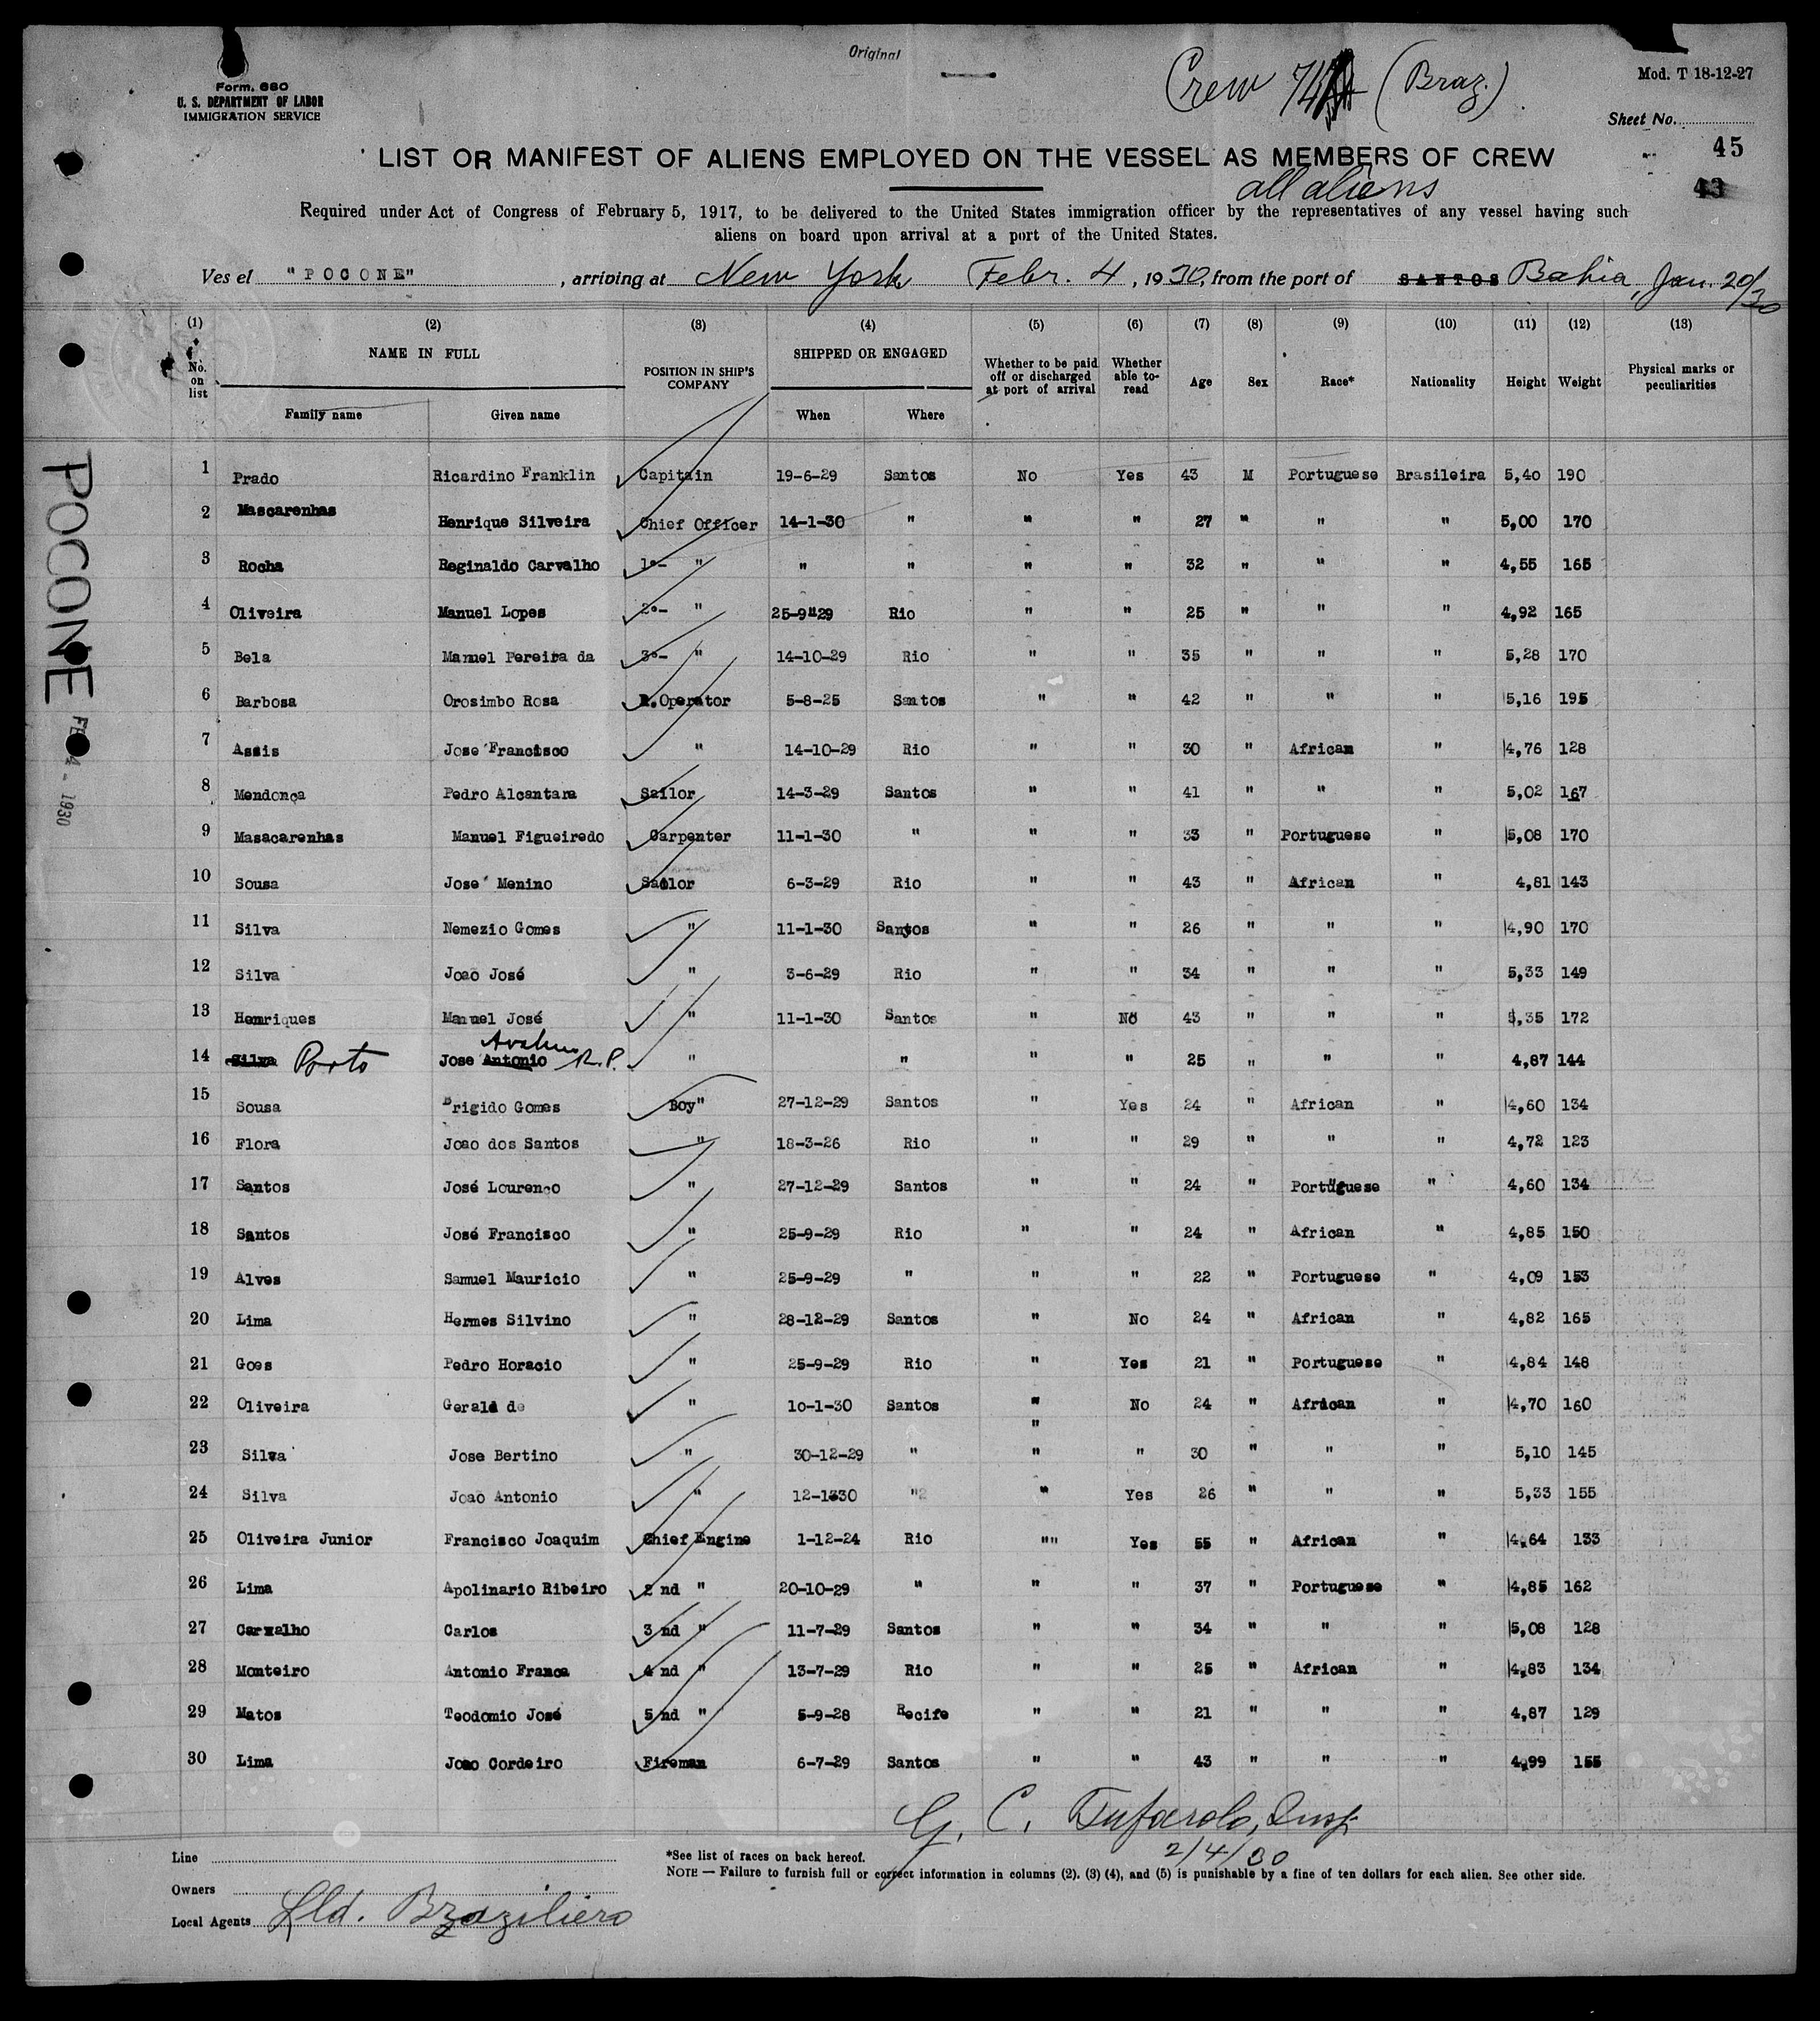 Original
Crew 74 (Braz.)
Mod. T 18-12-27
Form. 680
U. S. DEPARTMENT OF LABOR
IMMIGRATION SERVICE
Sheet No.
45
43
LIST OR MANIFEST OF ALIENS EMPLOYED ON THE VESSEL AS MEMBERS OF CREW
all aliens
Required under Act of Congress of February 5, 1917, to be delivered to the United States immigration officer by the representatives of any vessel having such
aliens on board upon arrival at a port of the United States.
Ves el "POCONE", arriving at New York Febr. 4, 1930, from the port of SANTOS Bahia, Jan. 20/30
(1) (2) (3) (4) (5) (6) (7) (8) (9) (10) (11) (12) (13)
No. on list NAME IN FULL POSITION IN SHIP'S COMPANY SHIPPED OR ENGAGED Whether to be paid off or discharged at port of arrival Whether able to read Age Sex Race* Nationality Height Weight Physical marks or peculiarities
Family name Given name When Where
1 Prado Ricardino Franklin Capitain 19-6-29 Santos No Yes 43 M Portuguese Brasileira 5,40 190
2 Mascarenhas Henrique Silveira Chief Officer 14-1-30 " " " 27 " " " 5,00 170
3 Rocha Reginaldo Carvalho 1º- " " " " " 32 " " " 4,55 165
4 Oliveira Manuel Lopes 2º- " 25-9"29 Rio " " 25 " " " 4,92 165
5 Bela Manuel Pereira da 3º- " 14-10-29 Rio " " 35 " " " 5,28 170
6 Barbosa Orosimbo Rosa R.Operator 5-8-25 Santos " " 42 " " " 5,16 195
7 Assis Jose Francisco " 14-10-29 Rio " " 30 " African " 4,76 128
8 Mendonça Pedro Alcantara Sailor 14-3-29 Santos " " 41 " " " 5,02 167
9 Masacarenhas Manuel Figueiredo Carpenter 11-1-30 " " " 33 " Portuguese " 5,08 170
10 Sousa Jose Menino Sailor 6-3-29 Rio " " 43 " African " 4,81 143
11 Silva Nemezio Gomes " 11-1-30 Santos " " 26 " " " 4,90 170
12 Silva Joao José " 3-6-29 Rio " " 34 " " " 5,33 149
13 Henriques Manuel José " 11-1-30 Santos " No 43 " " " 5,35 172
14 Silva Porto Jose Antonio R.P. " " " " 25 " " " 4,87 144
15 Sousa Brigido Gomes Boy" 27-12-29 Santos " Yes 24 " African " 4,60 134
16 Flora Joao dos Santos " 18-3-26 Rio " " 29 " " " 4,72 123
17 Santos José Lourenço " 27-12-29 Santos " " 24 " Portuguese " 4,60 134
18 Santos José Francisco " 25-9-29 Rio " " 24 " African " 4,85 150
19 Alves Samuel Mauricio " 25-9-29 " " " 22 " Portuguese " 4,09 153
20 Lima Hermes Silvino " 28-12-29 Santos " No 24 " African " 4,82 165
21 Goes Pedro Horacio " 25-9-29 Rio " Yes 21 " Portuguese " 4,84 148
22 Oliveira Gerald de " 10-1-30 Santos " No 24 " African " 4,70 160
23 Silva Jose Bertino " 30-12-29 " " " 30 " " " 5,10 145
24 Silva Joao Antonio " 12-1-30 " " Yes 26 " " " 5,33 155
25 Oliveira Junior Francisco Joaquim Chief Engine 1-12-24 Rio "" Yes 55 " African " 4,64 133
26 Lima Apolinario Ribeiro 2 nd " 20-10-29 " " " 37 " Portuguese " 4,85 162
27 Carvalho Carlos 3 nd " 11-7-29 Santos " " 34 " " " 5,08 128
28 Monteiro Antonio Franca 4 nd " 13-7-29 Rio " " 25 " African " 4,83 134
29 Matos Teodomio José 5 nd " 5-9-28 Recife " " 21 " " " 4,87 129
30 Lima Joao Cordeiro Fireman 6-7-29 Santos " " 43 " " " 4,99 155
G. C. Tufarolo, Insp.
2/4/30
Line
Owners
Local Agents Lld. Braziliero
*See list of races on back hereof.
NOTE — Failure to furnish full or correct information in columns (2). (3) (4), and (5) is punishable by a fine of ten dollars for each alien. See other side.
POCONE
FEB 4 - 1930